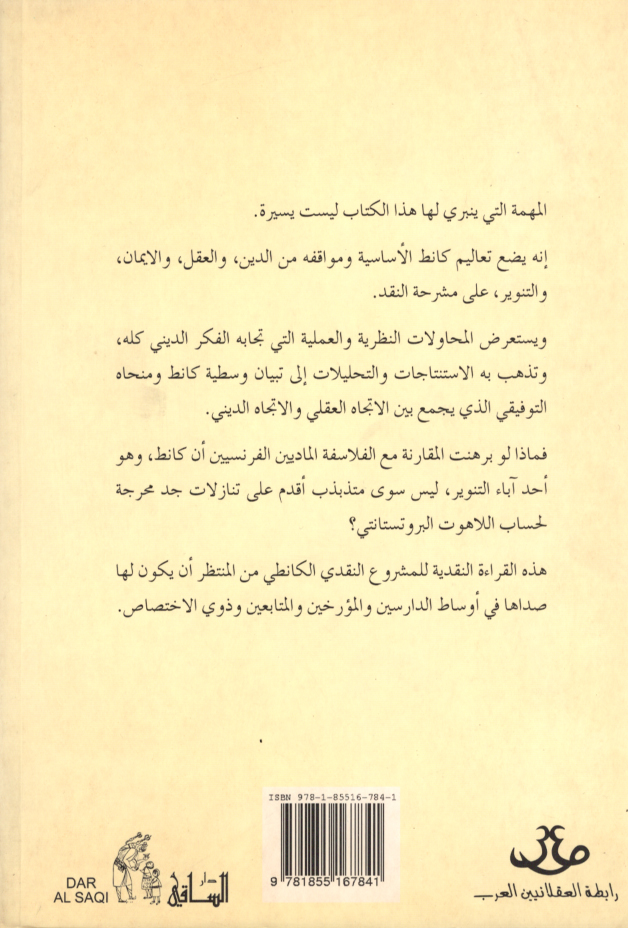 المهمة التي ينبري لها هذا الكتاب ليست يسيرة.
إنه يضع تعاليم كانط الأساسية ومواقفه من الدين، والعقل، والايمان،
والتنوير، على مشرحة النقد.
ويستعرض المحاولات النظرية والعملية التي تجابه الفكر الديني كله،
وتذهب به الاستنتاجات والتحليلات إلى تبيان وسطية كانط ومنحاه
التوفيقي الذي يجمع بين الاتجاه العقلي والاتجاه الديني.
فماذا لو برهنت المقارنة مع الفلاسفة الماديين الفرنسيين أن كانط، وهو
أحد آباء التنوير، ليس سوى متذبذب أقدم على تنازلات جد محرجة
لحساب اللاهوت البروتستانتي؟
هذه القراءة النقدية للمشروع النقدي الكانطي من المنتظر أن يكون لها
صداها في أوساط الدارسين والمؤرخين والمتابعين وذوي الاختصاص.
ISBN 978-1-85516-784-1
9 781855 167841
DAR
AL SAQI
دار
الساقي
رابطة العقلانيين العرب